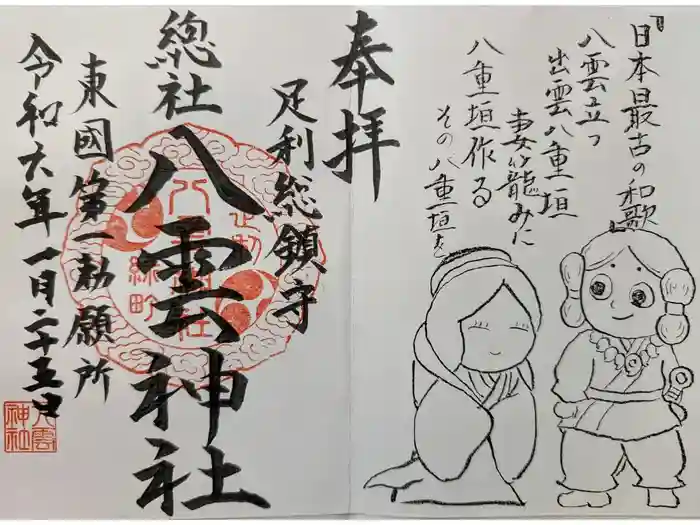 『日本最古の和歌
八雲立つ
出雲八重垣
妻籠みに
八重垣作る
その八重垣を
奉拝
足利総鎮守
總社
八雲神社
東國第一勅願所
令和六年一月二十五日
八雲
神社